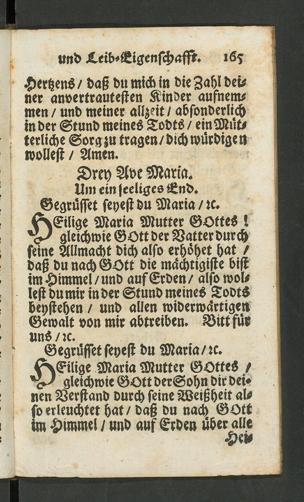 und Leib-Eigenschafft. 165
Hertzens / daß du mich in die Zahl dei-
ner anvertrautesten Kinder aufnem-
men / und meiner allzeit / absonderlich
in der Stund meines Todts / ein Müt-
terliche Sorg zu tragen / dich würdigen
wollest / Amen.
Drey Ave Maria.
Um ein seeliges End.
Gegrüsset seyest du Maria / ꝛc.
HEilige Maria Mutter GOttes !
gleichwie GOtt der Vatter durch
seine Allmacht dich also erhöhet hat /
daß du nach GOtt die mächtigiste bist
im Himmel / und auf Erden / also wol-
lest du mir in der Stund meines Todts
beystehen / und allen widerwärtigen
Gewalt von mir abtreiben. Bitt für
uns / ꝛc.
Gegrüsset seyest du Maria / ꝛc.
HEilige Maria Mutter GOttes /
gleichwie GOtt der Sohn dir dei-
nen Verstand durch seine Weißheit al-
so erleuchtet hat / daß du nach GOtt
im Himmel / und auf Erden über alle
Hei-